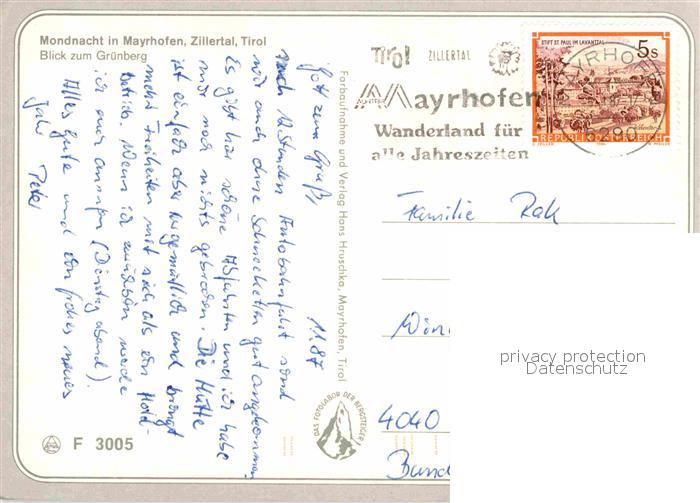 Mondnacht in Mayrhofen, Zillertal, Tirol
Blick zum Grünberg
Gott zum Gruß, 1.1.87
nach 12 Stunden Autobahnfahrt sind
wir auch ohne Schneeketten gut angekommen
Es gibt hier schöne Abfahrten und ich habe
mir noch nichts gebrochen. Die Hütte
ist einfach aber urgemütlich und bringt
mehr Freiheiten mit sich als ein Hotel-
betrieb. Wenn ich zuhause werde
ich mal anrufen (Dienstag abend).
Alles gute und ein frohes neues
Jahr Peter
F 3005
Farbaufnahme und Verlag Hans Hruschka, Mayrhofen, Tirol
DAS FOTOLABOR DER BERGSTEIGER
Tirol ZILLERTAL
Mayrhofen
Wanderland für
alle Jahreszeiten
MAYRHOFEN
6290
STIFT ST. PAUL IM LAVANTTAL
5 S
REPUBLIK ÖSTERREICH
Familie Rak
4040
privacy protection
Datenschutz